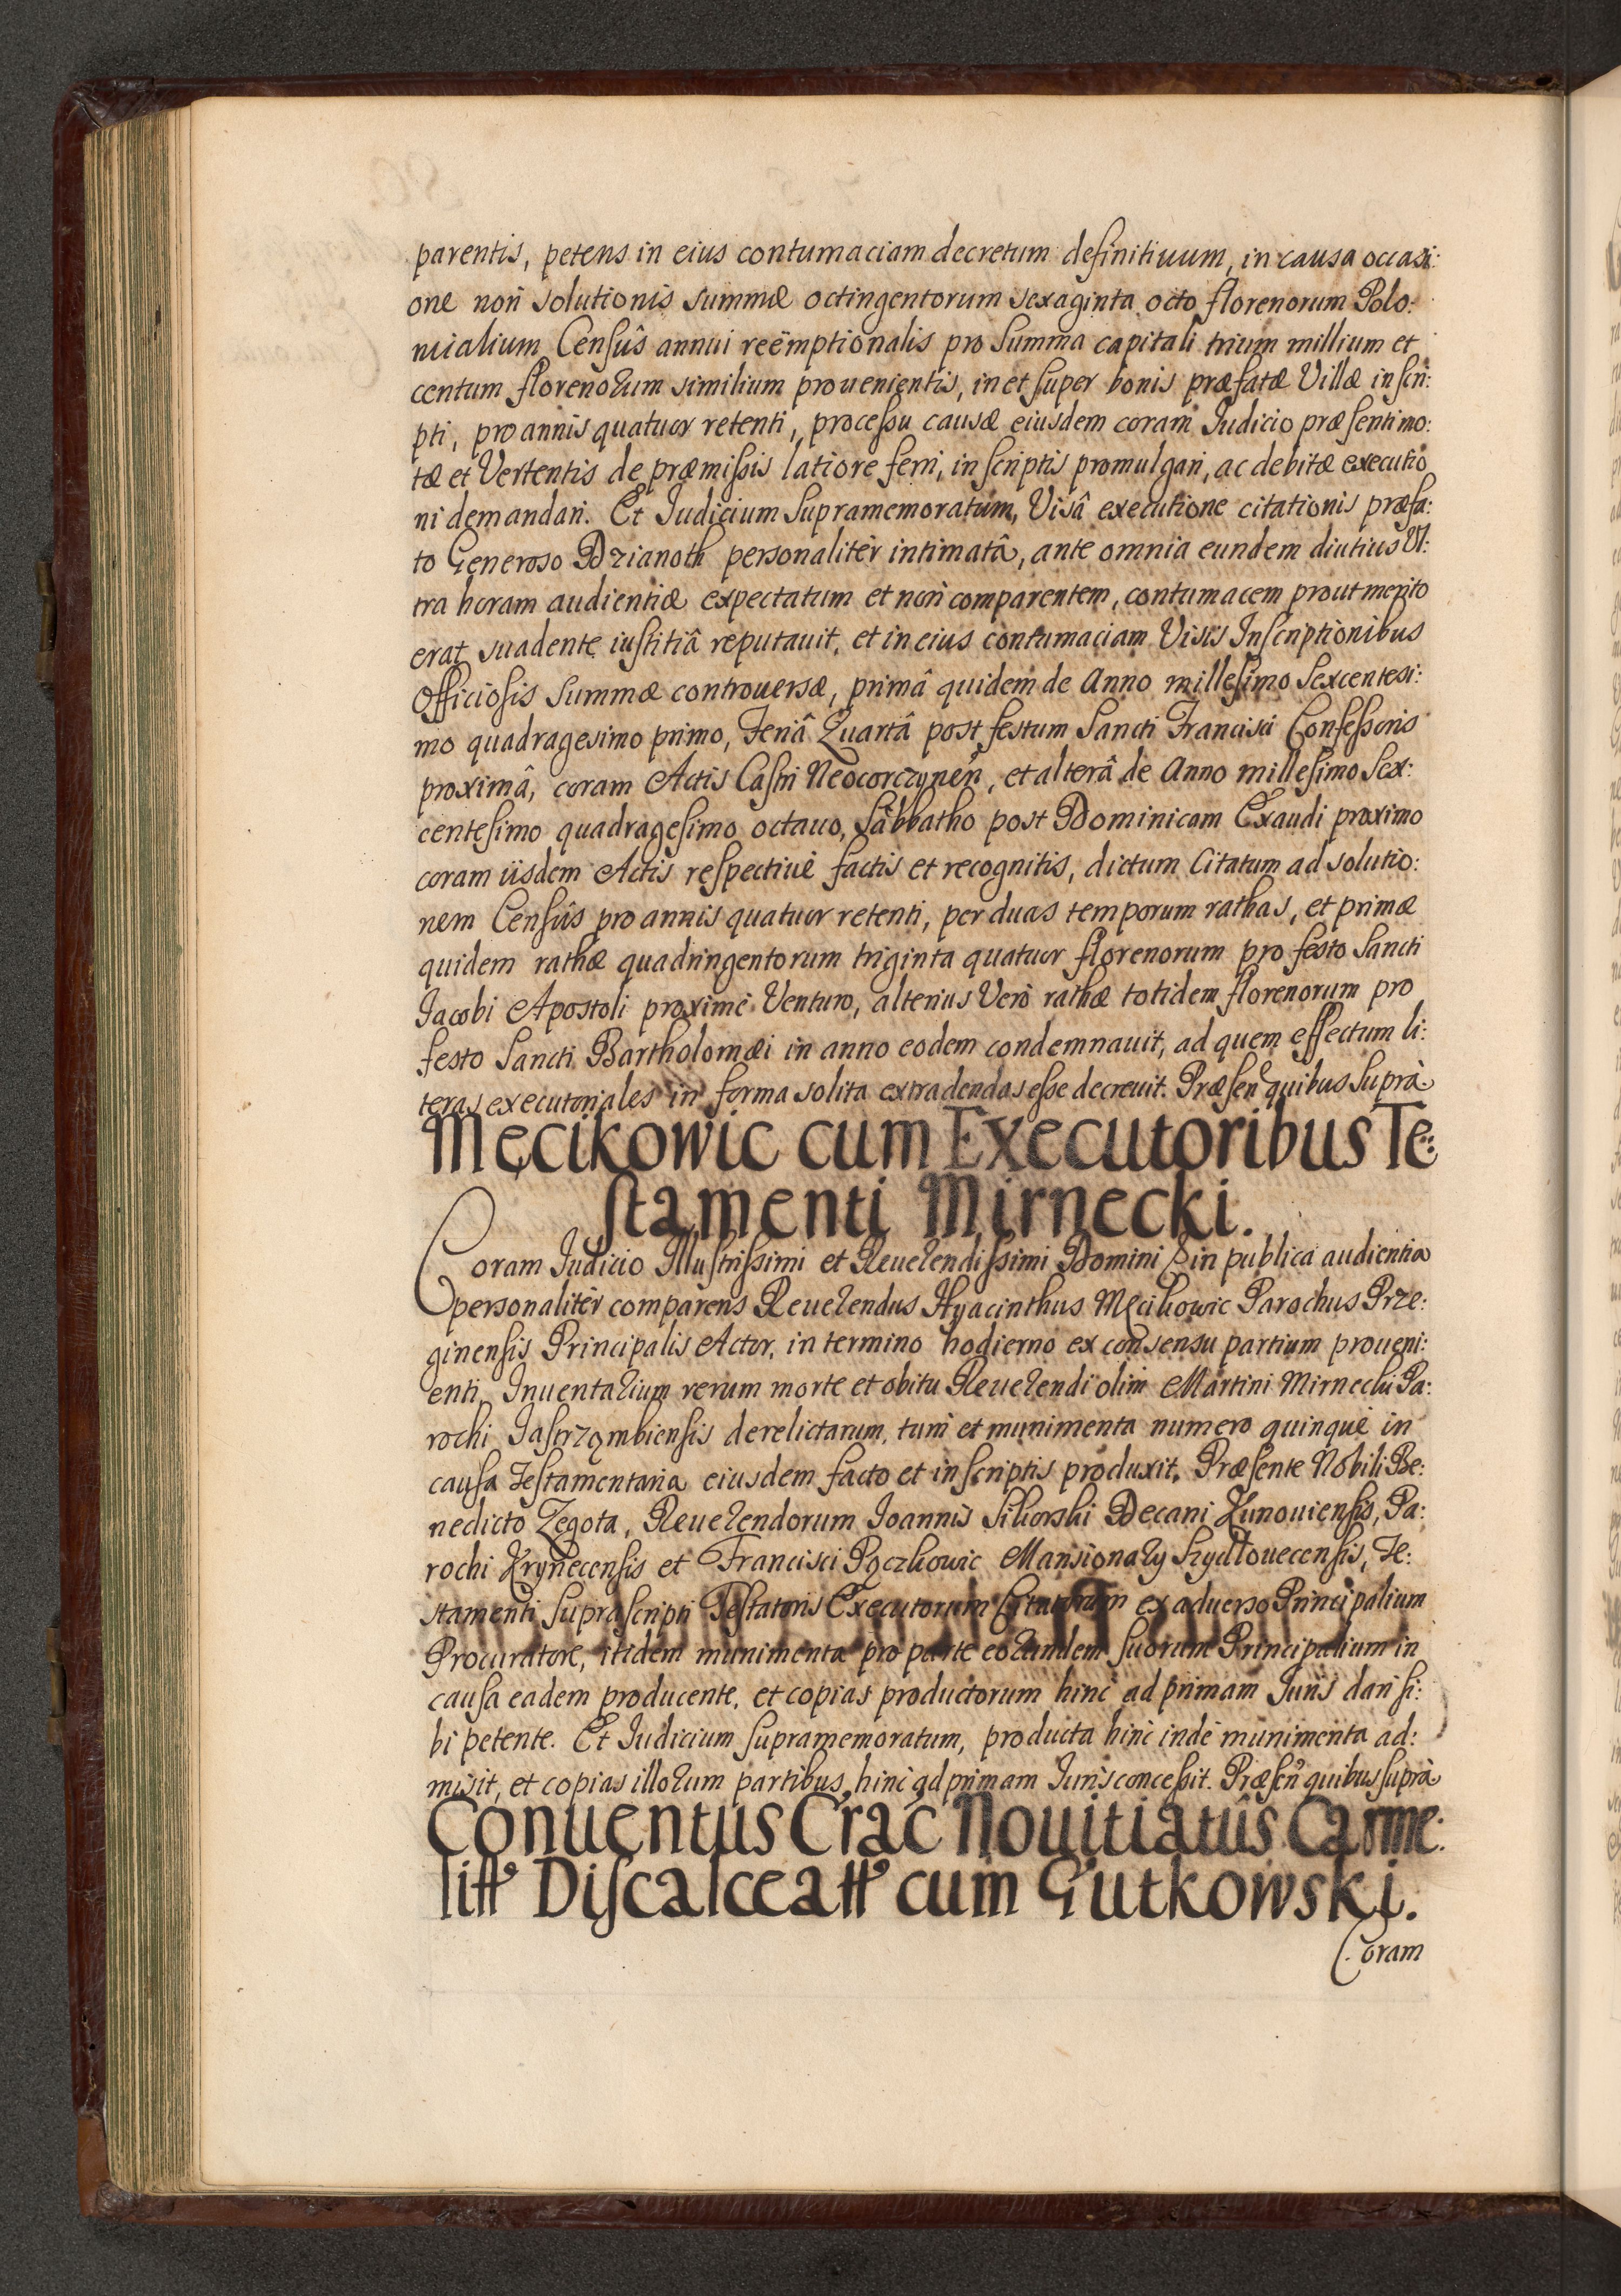 parentis, petens in eius contumaciam decretum definitiuum, in causa occasi:
one non solutionis summæ octingentorum sexaginta octo florenorum Polo:
nicalium Censûs annui reëmptionalis pro summa capitali trium millium et
centum florenorum similium prouenientis, in et super bonis præfatæ Villæ inscri:
pti, pro annis quatuor retenti, processu causæ eiusdem coram Iudicio præsenti mo:
tæ et Vertentis de præmissis latiore ferri, in scriptis promulgari, ac debitæ executio
ni demandari. Et Iudicium supramemoratum, Visâ executione citationis præfa:
to Generoso Drianoth personalitèr intimatâ, ante omnia eundem diutius Vl:
tra horam audientiæ expectatum et non comparentem, contumacem prout merito
erat suadente iustitiâ reputauit, et in eius contumaciam Visis Inscriptionibus
Officiosis summæ controuersæ, primâ quidem de Anno millesimo sexcentesi:
mo quadragesimo primo, Feriâ Quartâ post festum Sancti Francisci Confessoris
proximâ, coram Actis Castri Neocorczyneń, et alterâ de Anno millesimo sex:
centesimo quadragesimo octauo, Sabbatho post Dominicam Exaudi proximo
coram iisdem Actis respectiuè factis et recognitis, dictum Citatum ad solutio:
nem Censûs pro annis quatuor retenti, per duas temporum rathas, et primæ
quidem rathæ quadringentorum triginta quatuor florenorum pro festo Sancti
Iacobi Apostoli proximè Venturo, alterius Verò rathæ totidem florenorum pro
festo Sancti Bartholomæi in anno eodem condemnauit, ad quem effectum li:
teras executoriales in forma solita extradendas esse decreuit. Præsen quibus suprà
Męcikowic cum Executoribus Te:
stamenti Mirnecki.
Coram Iudicio Illustrissimi et Reuerendissimi Domini in publica audientia
personalitèr comparens Reuerendus Hyacinthus Męcikowic Parochus Prze:
ginensis Principalis Actor, in termino hodierno ex consensu partium proueni:
enti, Inuentarium rerum morte et obitu Reuerendi olim Martini Mirnecki Pa:
rochi Jastrzombiensis derelictarum, tum et munimenta numero quinque in
causa Testamentaria eiusdem facto et in scriptis produxit. Præsente Nobili Be:
nedicto Zegota, Reuerendorum Ioannis Sikorski Decani Kunouiensis, Pa:
rochi Krynecensis et Francisci Pączkowic Mansionarij Szydłouecensis, Te:
stamenti suprascripti Testatoris Executorum Citatorum ex aduerso Principalium
Procuratore, itidem munimenta pro parte eorundem suorum Principalium in
causa eadem producente, et copias productorum hinc ad primam Iuris dari si:
bi petente. Et Iudicium supramemoratum, producta hinc inde munimenta ad:
misit, et copias illorum partibus hinc ad primam Iuris concessit. Præseń quibus suprà
Conuentus Crac Nouitiatûs Carme:
litt Discalceatt cum Gutkowski.
Coram